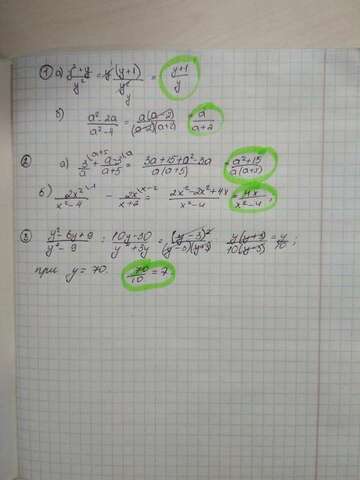 1 а) y²+y / y² = y(y+1) / y² = y+1 / y
y
б) a²-2a / a²-4 = a(a-2) / (a-2)(a+2) = a / a+2
2 а) 3 / a + a-3 / a+5 = 3a+15+a²-3a / a(a+5) = a²+15 / a(a+5)
б) 2x² / x²-4 - 2x / x+2 = 2x²-2x²+4x / x²-4 = 4x / x²-4;
3 y²-6y+9 / y²-9 : 10y-30 / y²+3y = (y-3)² / (y-3)(y+3) y(y+3) / 10(y-3) = y / 10;
при y=70. 70 / 10 = 7.